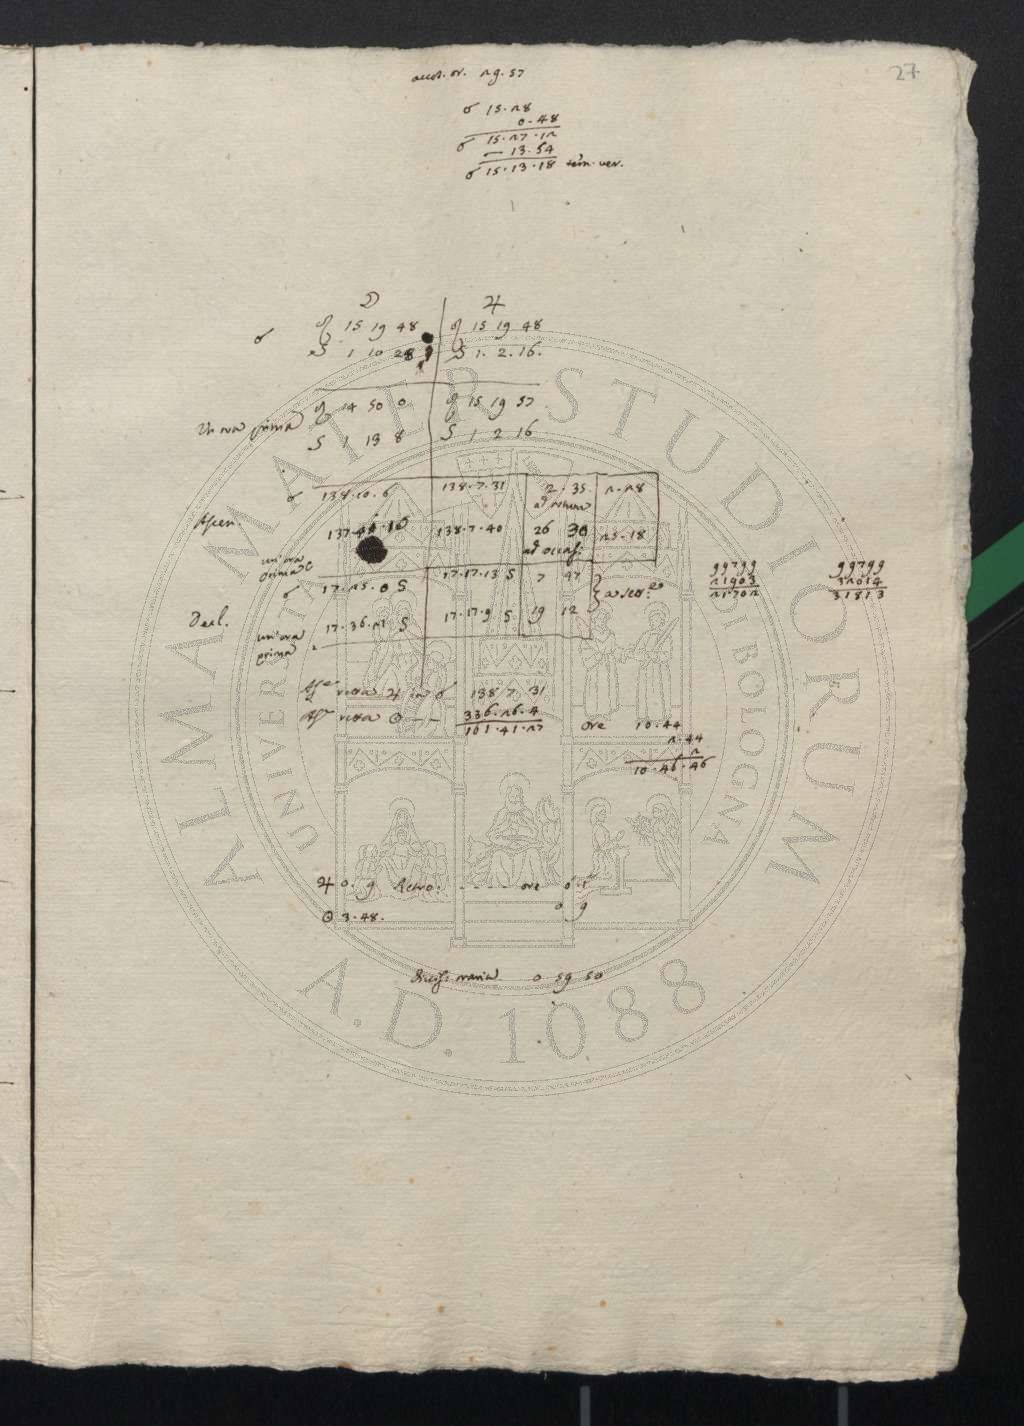 27
acces. or. 29. 57
☌ 15. 28
0. 48
☌ 15. 27. 12
— 13. 54
☌ 15. 13. 18 tem. ver.
☽ ♃
☌ ♌ 15 19 48 ♌ 15 19 48
S 1 10 28 S 1. 2. 16.
♌ 14 50 0 ♌ 15 19 57
Un ora prima
S 1 13 8 S 1 2 16
☌ 138. 10. 6 138. 7. 31 2. 35. 2. 28
Ascen.
137. 41. 10 138. 7. 40 26 30 25. 18
ad occas:
un'ora
prima
☌ 17. 25. 0 S 17. 17. 13 S 7 47
Decl.
17. 36. 21 S 17. 17. 9 S 19 12
un'ora
prima
99799
21903
21702
99799
32014
31813
retta ♃ in ☌ 138 7 31
retta ☉ — — 336. 26. 4
101. 41. 27
ore 10. 44
2. 44
2
10. 46. 46
♃ 0. 9 Retro: - - - - ore
0 9
☉ 3. 48.
oraria 0 59 50
ALMA MATER STUDIORUM
UNIVERSITÀ DI BOLOGNA
A.D. 1088